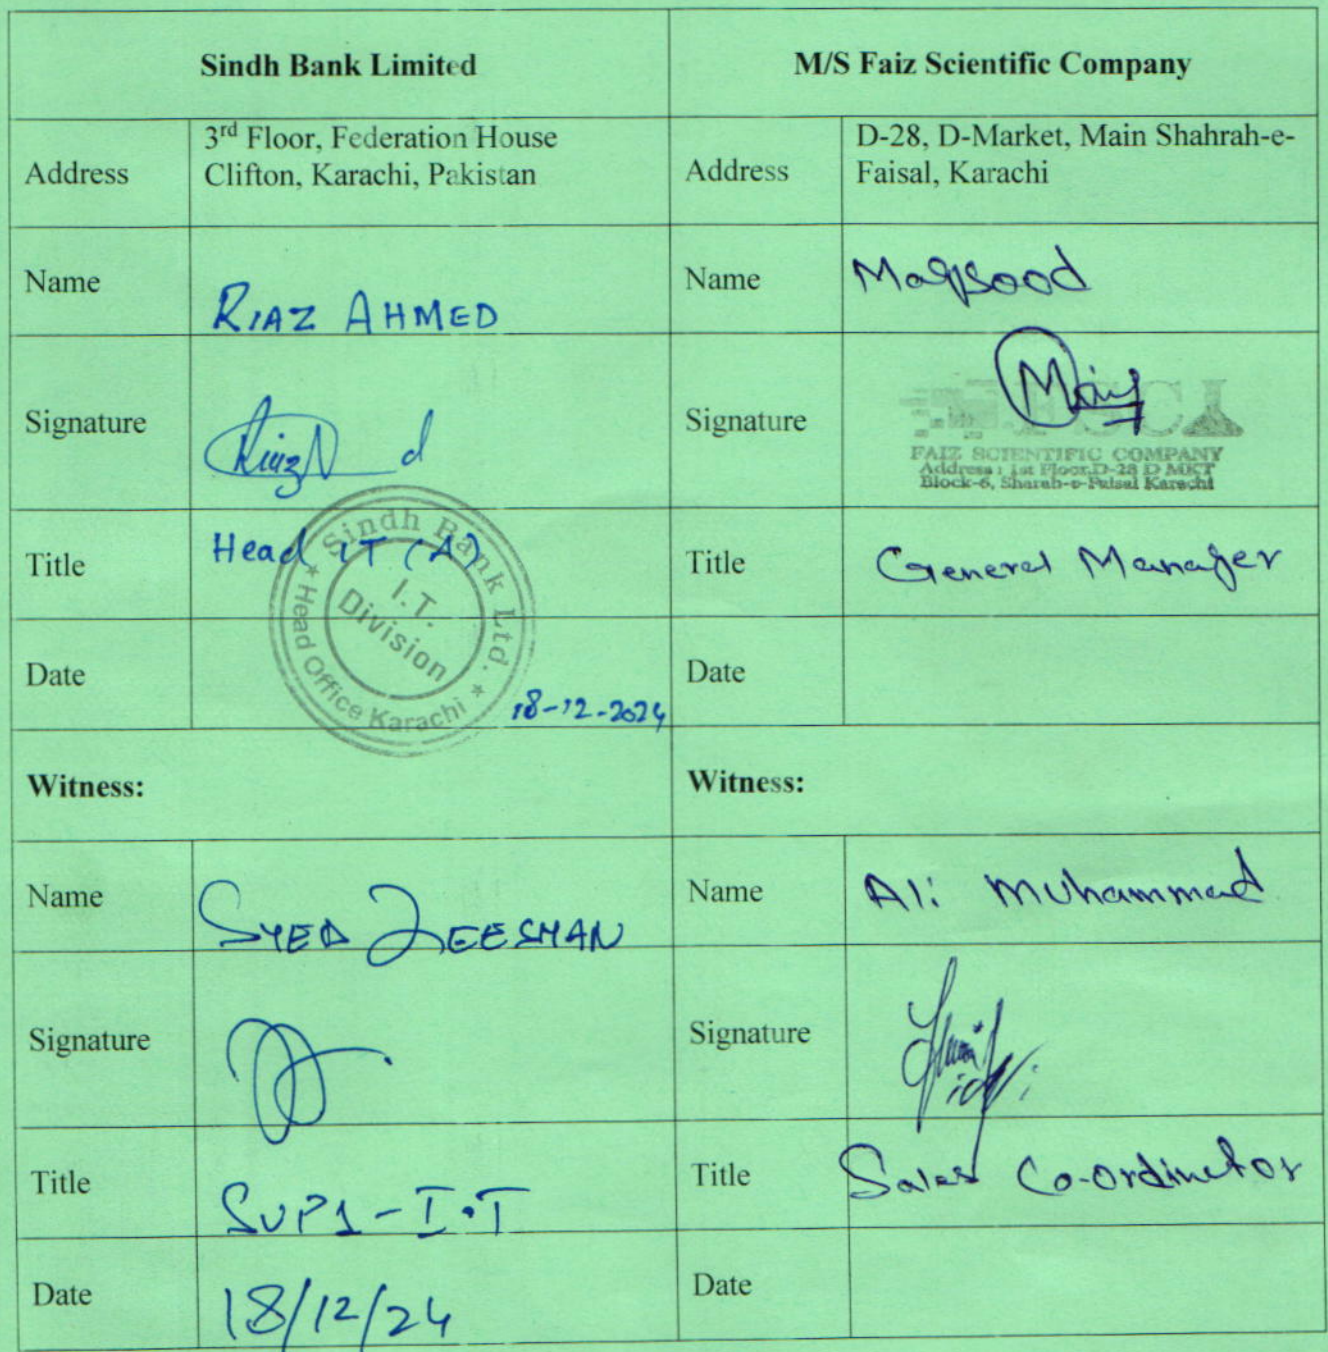 Sindh Bank Limited
M/S Faiz Scientific Company
Address
3rd Floor, Federation House
Clifton, Karachi, Pakistan
Address
D-28, D-Market, Main Shahrah-e-
Faisal, Karachi
Name
RIAZ AHMED
Name
Maqsood
Signature
Signature
FAIZ SCIENTIFIC COMPANY
Address : 1st Floor, D-28 D MKT
Block-6, Sharah-e-Faisal Karachi
Title
Head IT (A)
Sindh Bank Ltd.
I.T.
Division
* Head Office Karachi *
Title
General Manager
Date
18-12-2024
Date
Witness:
Witness:
Name
SYED ZEESHAN
Name
Ali Muhammad
Signature
Signature
Title
SVP1-I.T
Title
Sales Co-ordinator
Date
18/12/24
Date